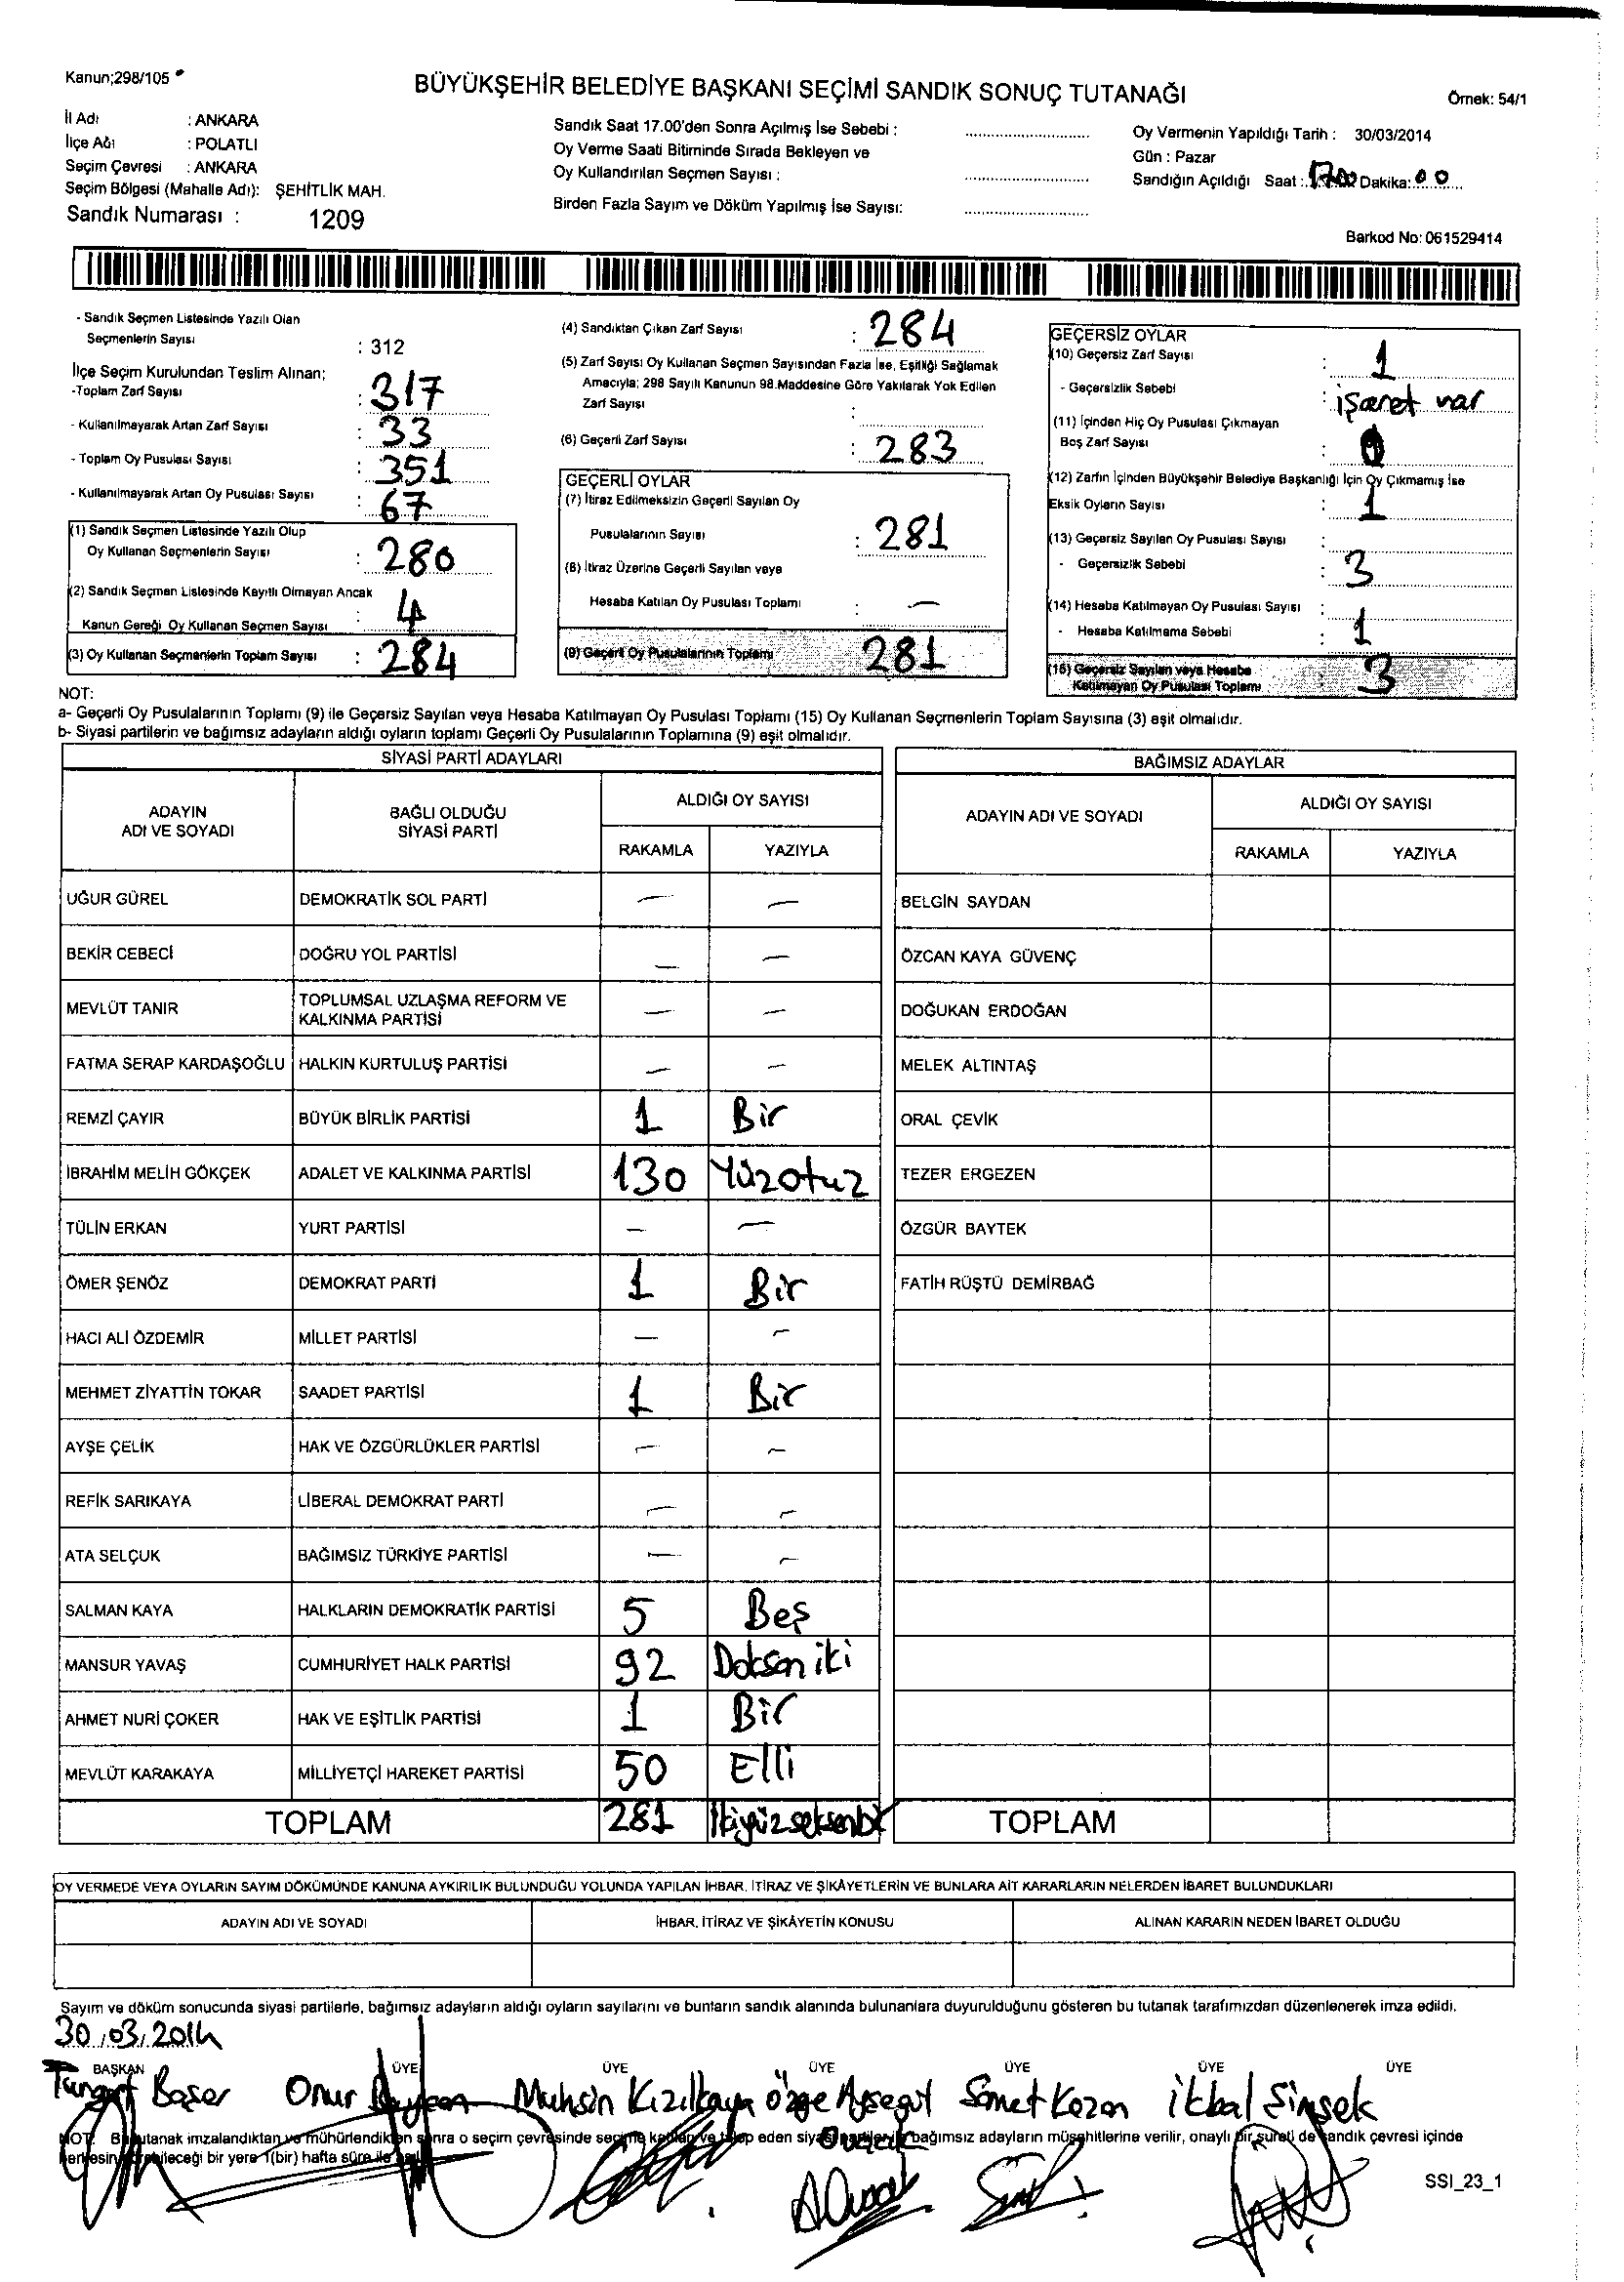 Kanun;298/105
BÜYÜKŞEHİR BELEDİYE BAŞKANI SEÇİMİ SANDIK SONUÇ TUTANAĞI
Örnek: 54/1
İl Adı : ANKARA
İlçe Adı : POLATLI
Seçim Çevresi : ANKARA
Seçim Bölgesi (Mahalle Adı): ŞEHİTLİK MAH.
Sandık Numarası : 1209
Sandık Saat 17.00'den Sonra Açılmış İse Sebebi :
Oy Verme Saati Bitiminde Sırada Bekleyen ve
Oy Kullandırılan Seçmen Sayısı :
Birden Fazla Sayım ve Döküm Yapılmış İse Sayısı:
Oy Vermenin Yapıldığı Tarih : 30/03/2014
Gün : Pazar
Sandığın Açıldığı Saat : 17.00 Dakika: 00
Barkod No: 061529414
- Sandık Seçmen Listesinde Yazılı Olan
Seçmenlerin Sayısı : 312
İlçe Seçim Kurulundan Teslim Alınan;
-Toplam Zarf Sayısı : 317
- Kullanılmayarak Artan Zarf Sayısı : 33
- Toplam Oy Pusulası Sayısı : 351
- Kullanılmayarak Artan Oy Pusulası Sayısı : 67
(1) Sandık Seçmen Listesinde Yazılı Olup
Oy Kullanan Seçmenlerin Sayısı : 280
(2) Sandık Seçmen Listesinde Kayıtlı Olmayan Ancak
Kanun Gereği Oy Kullanan Seçmen Sayısı : 4
(3) Oy Kullanan Seçmenlerin Toplam Sayısı : 284
(4) Sandıktan Çıkan Zarf Sayısı : 284
(5) Zarf Sayısı Oy Kullanan Seçmen Sayısından Fazla İse, Eşitliği Sağlamak
Amacıyla; 298 Sayılı Kanunun 98.Maddesine Göre Yakılarak Yok Edilen
Zarf Sayısı :
(6) Geçerli Zarf Sayısı : 283
GEÇERLİ OYLAR
(7) İtiraz Edilmeksizin Geçerli Sayılan Oy
Pusulalarının Sayısı : 281
(8) İtiraz Üzerine Geçerli Sayılan veya
Hesaba Katılan Oy Pusulası Toplamı : —
(9) Geçerli Oy Pusulalarının Toplamı 281
GEÇERSİZ OYLAR
(10) Geçersiz Zarf Sayısı : 1
- Geçersizlik Sebebi : işaret var
(11) İçinden Hiç Oy Pusulası Çıkmayan
Boş Zarf Sayısı : 0
(12) Zarfın İçinden Büyükşehir Belediye Başkanlığı İçin Oy Çıkmamış İse
Eksik Oyların Sayısı : 1
(13) Geçersiz Sayılan Oy Pusulası Sayısı :
- Geçersizlik Sebebi : 3
(14) Hesaba Katılmayan Oy Pusulası Sayısı :
- Hesaba Katılmama Sebebi : 1
(15) Geçersiz Sayılan veya Hesaba
Katılmayan Oy Pusulası Toplamı 3
NOT:
a- Geçerli Oy Pusulalarının Toplamı (9) ile Geçersiz Sayılan veya Hesaba Katılmayan Oy Pusulası Toplamı (15) Oy Kullanan Seçmenlerin Toplam Sayısına (3) eşit olmalıdır.
b- Siyasi partilerin ve bağımsız adayların aldığı oyların toplamı Geçerli Oy Pusulalarının Toplamına (9) eşit olmalıdır.
SİYASİ PARTİ ADAYLARI
ADAYIN ADI VE SOYADI BAĞLI OLDUĞU SİYASİ PARTİ ALDIĞI OY SAYISI
RAKAMLA YAZIYLA
UĞUR GÜREL DEMOKRATİK SOL PARTİ — —
BEKİR CEBECİ DOĞRU YOL PARTİSİ — —
MEVLÜT TANIR TOPLUMSAL UZLAŞMA REFORM VE KALKINMA PARTİSİ — —
FATMA SERAP KARDAŞOĞLU HALKIN KURTULUŞ PARTİSİ — —
REMZİ ÇAYIR BÜYÜK BİRLİK PARTİSİ 1 Bir
İBRAHİM MELİH GÖKÇEK ADALET VE KALKINMA PARTİSİ 130 Yüzotuz
TÜLİN ERKAN YURT PARTİSİ — —
ÖMER ŞENÖZ DEMOKRAT PARTİ 1 Bir
HACI ALİ ÖZDEMİR MİLLET PARTİSİ — —
MEHMET ZİYATTİN TOKAR SAADET PARTİSİ 1 Bir
AYŞE ÇELİK HAK VE ÖZGÜRLÜKLER PARTİSİ — —
REFİK SARIKAYA LİBERAL DEMOKRAT PARTİ — —
ATA SELÇUK BAĞIMSIZ TÜRKİYE PARTİSİ — —
SALMAN KAYA HALKLARIN DEMOKRATİK PARTİSİ 5 Beş
MANSUR YAVAŞ CUMHURİYET HALK PARTİSİ 92 Doksan iki
AHMET NURİ ÇOKER HAK VE EŞİTLİK PARTİSİ 1 Bir
MEVLÜT KARAKAYA MİLLİYETÇİ HAREKET PARTİSİ 50 Elli
TOPLAM 281 İkiyüzseksenbir
BAĞIMSIZ ADAYLAR
ADAYIN ADI VE SOYADI ALDIĞI OY SAYISI
RAKAMLA YAZIYLA
BELGİN SAYDAN
ÖZCAN KAYA GÜVENÇ
DOĞUKAN ERDOĞAN
MELEK ALTINTAŞ
ORAL ÇEVİK
TEZER ERGEZEN
ÖZGÜR BAYTEK
FATİH RÜŞTÜ DEMİRBAĞ
TOPLAM
OY VERMEDE VEYA OYLARIN SAYIM DÖKÜMÜNDE KANUNA AYKIRILIK BULUNDUĞU YOLUNDA YAPILAN İHBAR, İTİRAZ VE ŞİKÂYETLERİN VE BUNLARA AİT KARARLARIN NELERDEN İBARET BULUNDUKLARI
ADAYIN ADI VE SOYADI İHBAR, İTİRAZ VE ŞİKÂYETİN KONUSU ALINAN KARARIN NEDEN İBARET OLDUĞU
Sayım ve döküm sonucunda siyasi partilerle, bağımsız adayların aldığı oyların sayılarını ve bunların sandık alanında bulunanlara duyurulduğunu gösteren bu tutanak tarafımızdan düzenlenerek imza edildi.
30.03.2014
BAŞKAN ÜYE ÜYE ÜYE ÜYE ÜYE ÜYE
Başer Onur Muhsin Kızılkaya Özge Ayşegül Samet Kazan İkbal Şimşek
NOT: Bu tutanak imzalandıktan ve mühürlendikten sonra o seçim çevresinde seçime katılan ve talep eden siyasi partiler ile bağımsız adayların müşahitlerine verilir, onaylı bir sureti de sandık çevresi içinde
herkesin görebileceği bir yere 1(bir) hafta süre ile
SSI_23_1